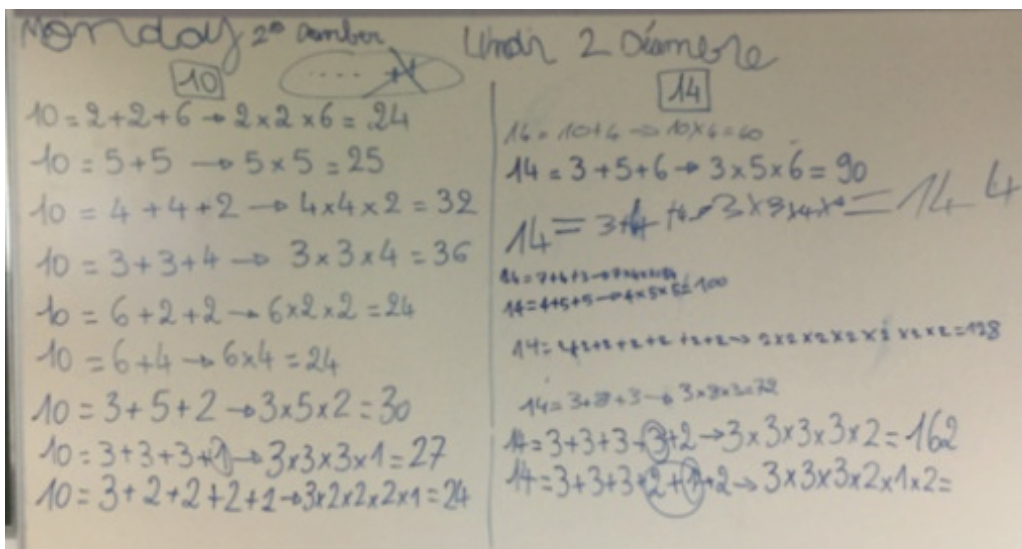 Monday 2º
10
10 = 2+2+6 → 2×2×6 = 24
10 = 5+5 → 5×5 = 25
10 = 4+4+2 → 4×4×2 = 32
10 = 3+3+4 → 3×3×4 = 36
10 = 6+2+2 → 6×2×2 = 24
10 = 6+4 → 6×4 = 24
10 = 3+5+2 → 3×5×2 = 30
10 = 3+3+3+1 → 3×3×3×1 = 27
10 = 3+2+2+2+1 → 3×2×2×2×1 = 24
Lundi 2
14
14 = 10+4 → 10×4 = 40
14 = 3+5+6 → 3×5×6 = 90
14 = 3+4 = 144
14 = 7+4+3 →
14 = 4+5+5 → 4×5×5 = 100
14 = 2+2+2+2+2+2+2 → 2×2×2×2×2×2×2 = 128
14 = 3+8+3 → 3×8×3 = 72
14 = 3+3+3+3+2 → 3×3×3×3×2 = 162
14 = 3+3+3+2+1+2 → 3×3×3×2×1×2 =